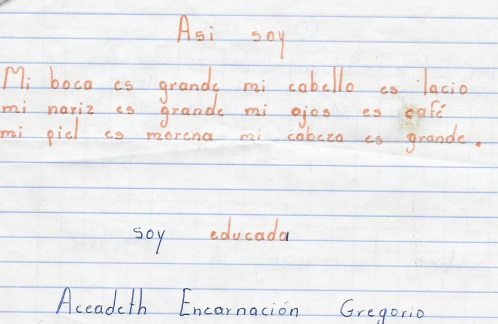 Asi soy
Mi boca es grande mi cabello es lacio
mi nariz es grande mi ojos es café
mi piel es morena mi cabeza es grande.
soy educada
Aceadeth Encarnación Gregorio